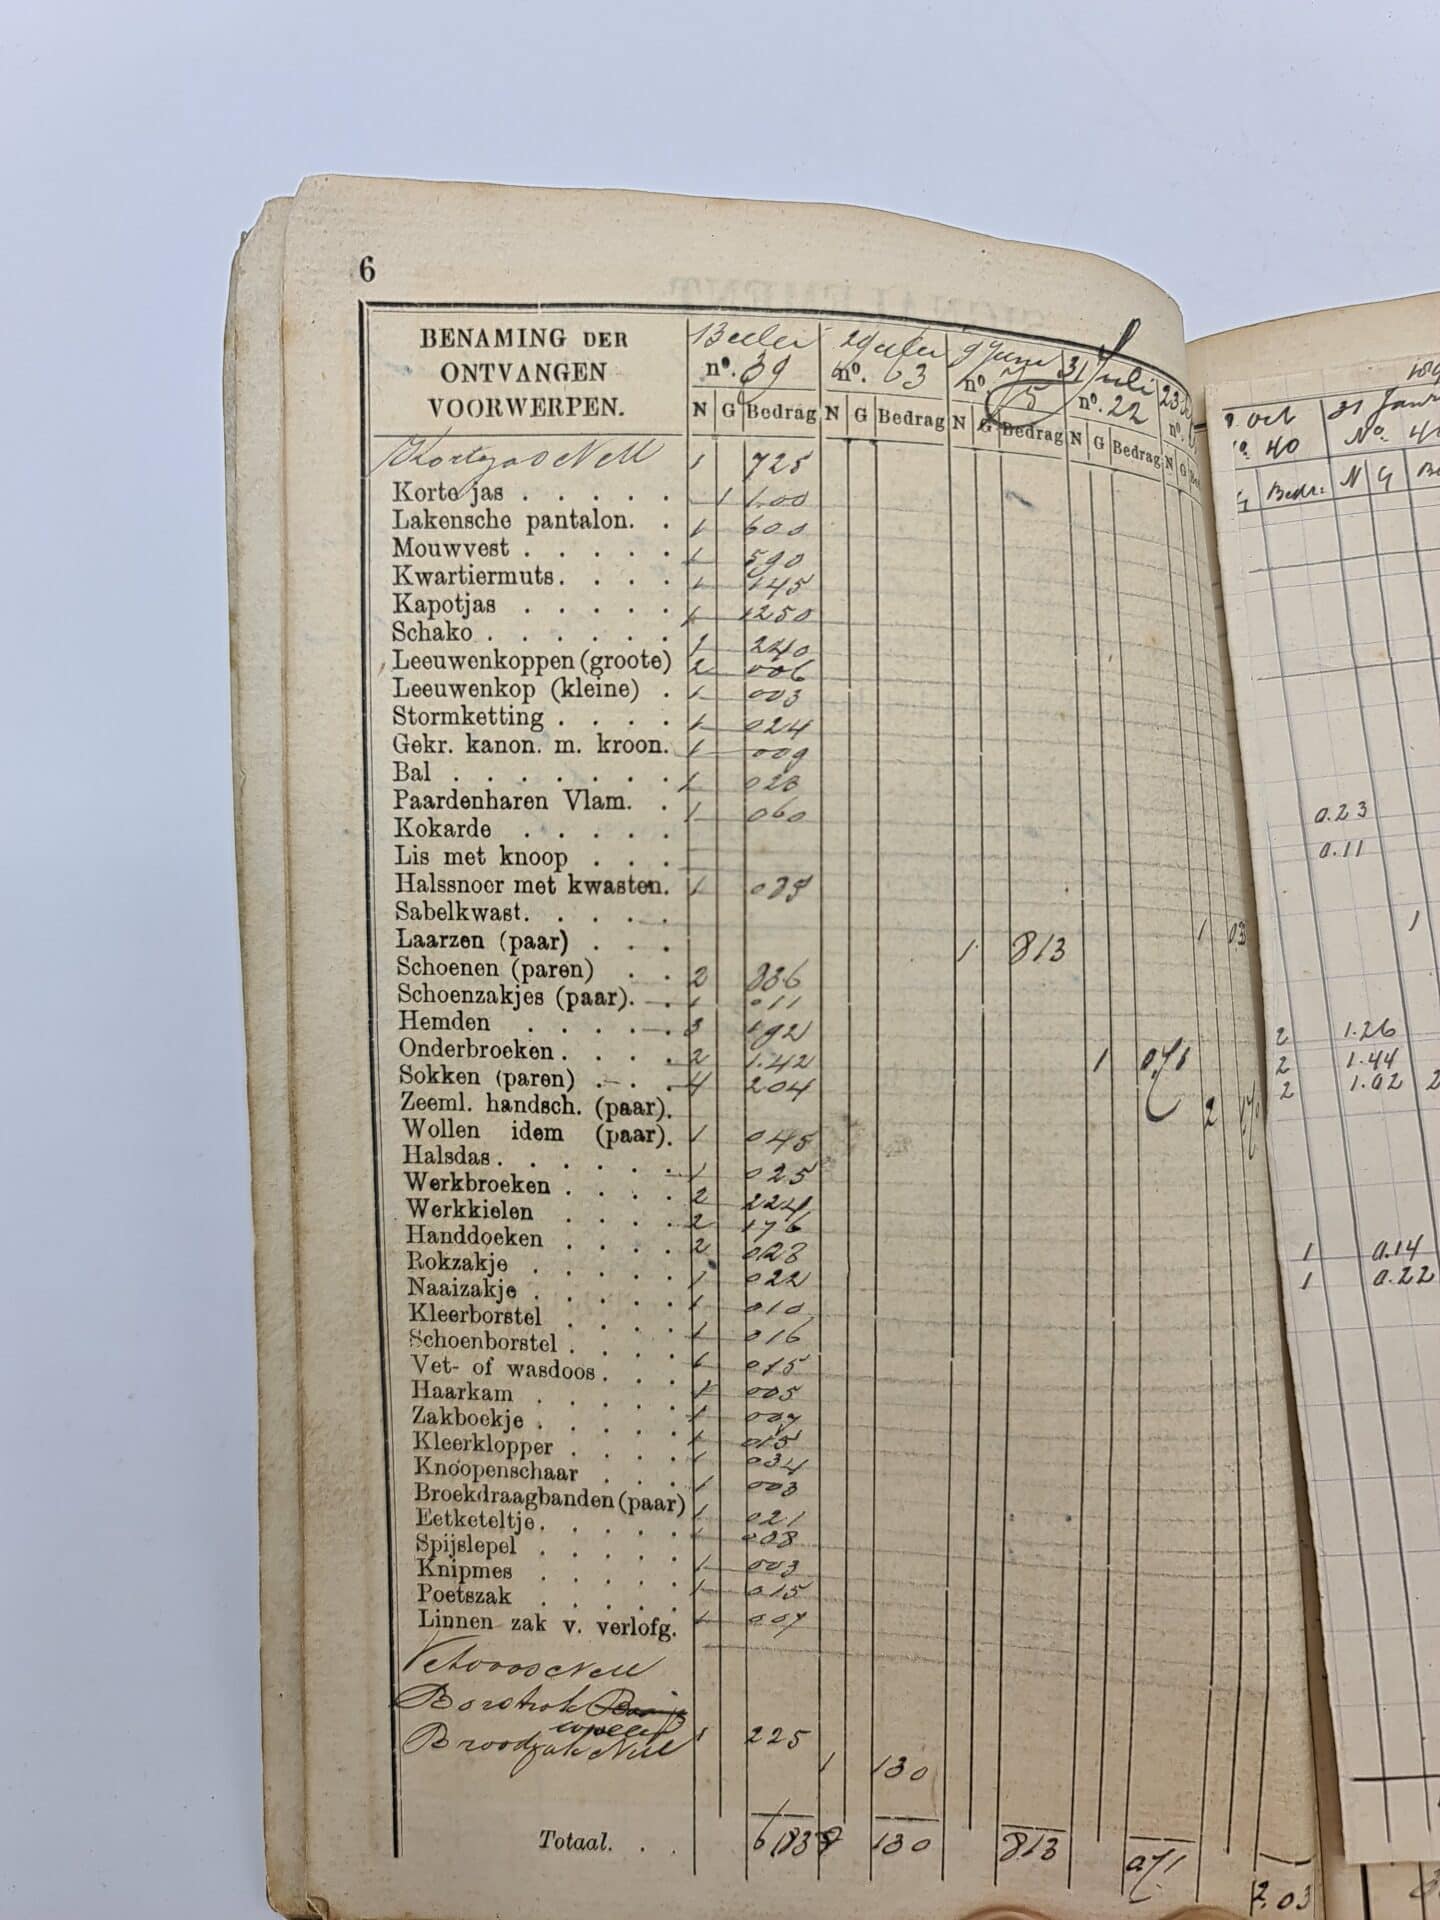 6
BENAMING DER
ONTVANGEN
VOORWERPEN.
nº. 39
nº. 63
9 Juni
nº. 75
31 Juli
nº. 22
23
nº.
N G Bedrag N G Bedrag N G Bedrag N G Bedrag N G
1 725
Korte jas . . . . . 1 1.00
Lakensche pantalon. . 1 600
Mouwvest . . . . . 1 590
Kwartiermuts. . . . 1 145
Kapotjas . . . . . 1 1250
Schako . . . . . . 1 240
Leeuwenkoppen (groote) 2 006
Leeuwenkop (kleine) . 1 003
Stormketting . . . . 1 024
Gekr. kanon. m. kroon. 1 009
Bal . . . . . . . 1 028
Paardenharen Vlam. . 1 060
Kokarde . . . . .
Lis met knoop . . .
Halssnoer met kwasten. 1
Sabelkwast. . . . .
Laarzen (paar) . . . 1 813 1
Schoenen (paren) . . 2 836
Schoenzakjes (paar). . 1 011
Hemden . . . . . 3 192
Onderbroeken . . . . 2 1.42 1 0,71
Sokken (paren) . . . 4 204 2
Zeeml. handsch. (paar).
Wollen idem (paar). 1 045
Halsdas . . . . . . 1 025
Werkbroeken . . . . 2 224
Werkkielen . . . . 2 176
Handdoeken . . . . 2 028
Rokzakje . . . . . 1 022
Naaizakje . . . . . 1 010
Kleerborstel . . . . 1 016
Schoenborstel . . . . 1 015
Vet- of wasdoos . . . 1 005
Haarkam . . . . . 1 007
Zakboekje . . . . . 1 015
Kleerklopper . . . . 1 034
Knoopenschaar . . . 1 003
Broekdraagbanden (paar) 1 021
Eetketeltje. . . . . 1 008
Spijslepel . . . . . 1 003
Knipmes . . . . . 1 015
Poetszak . . . . . 1 007
Linnen zak v. verlofg.
Borstrok
1 225
Broodzak
1 130
Totaal. . . 130 813 0,71 2.03
Oct
31
40
Nº. 4
Bedr. N G
0.23
0.11
1
2 1.26
2 1.44
2 1.02 2
1 0.14
1 0.22